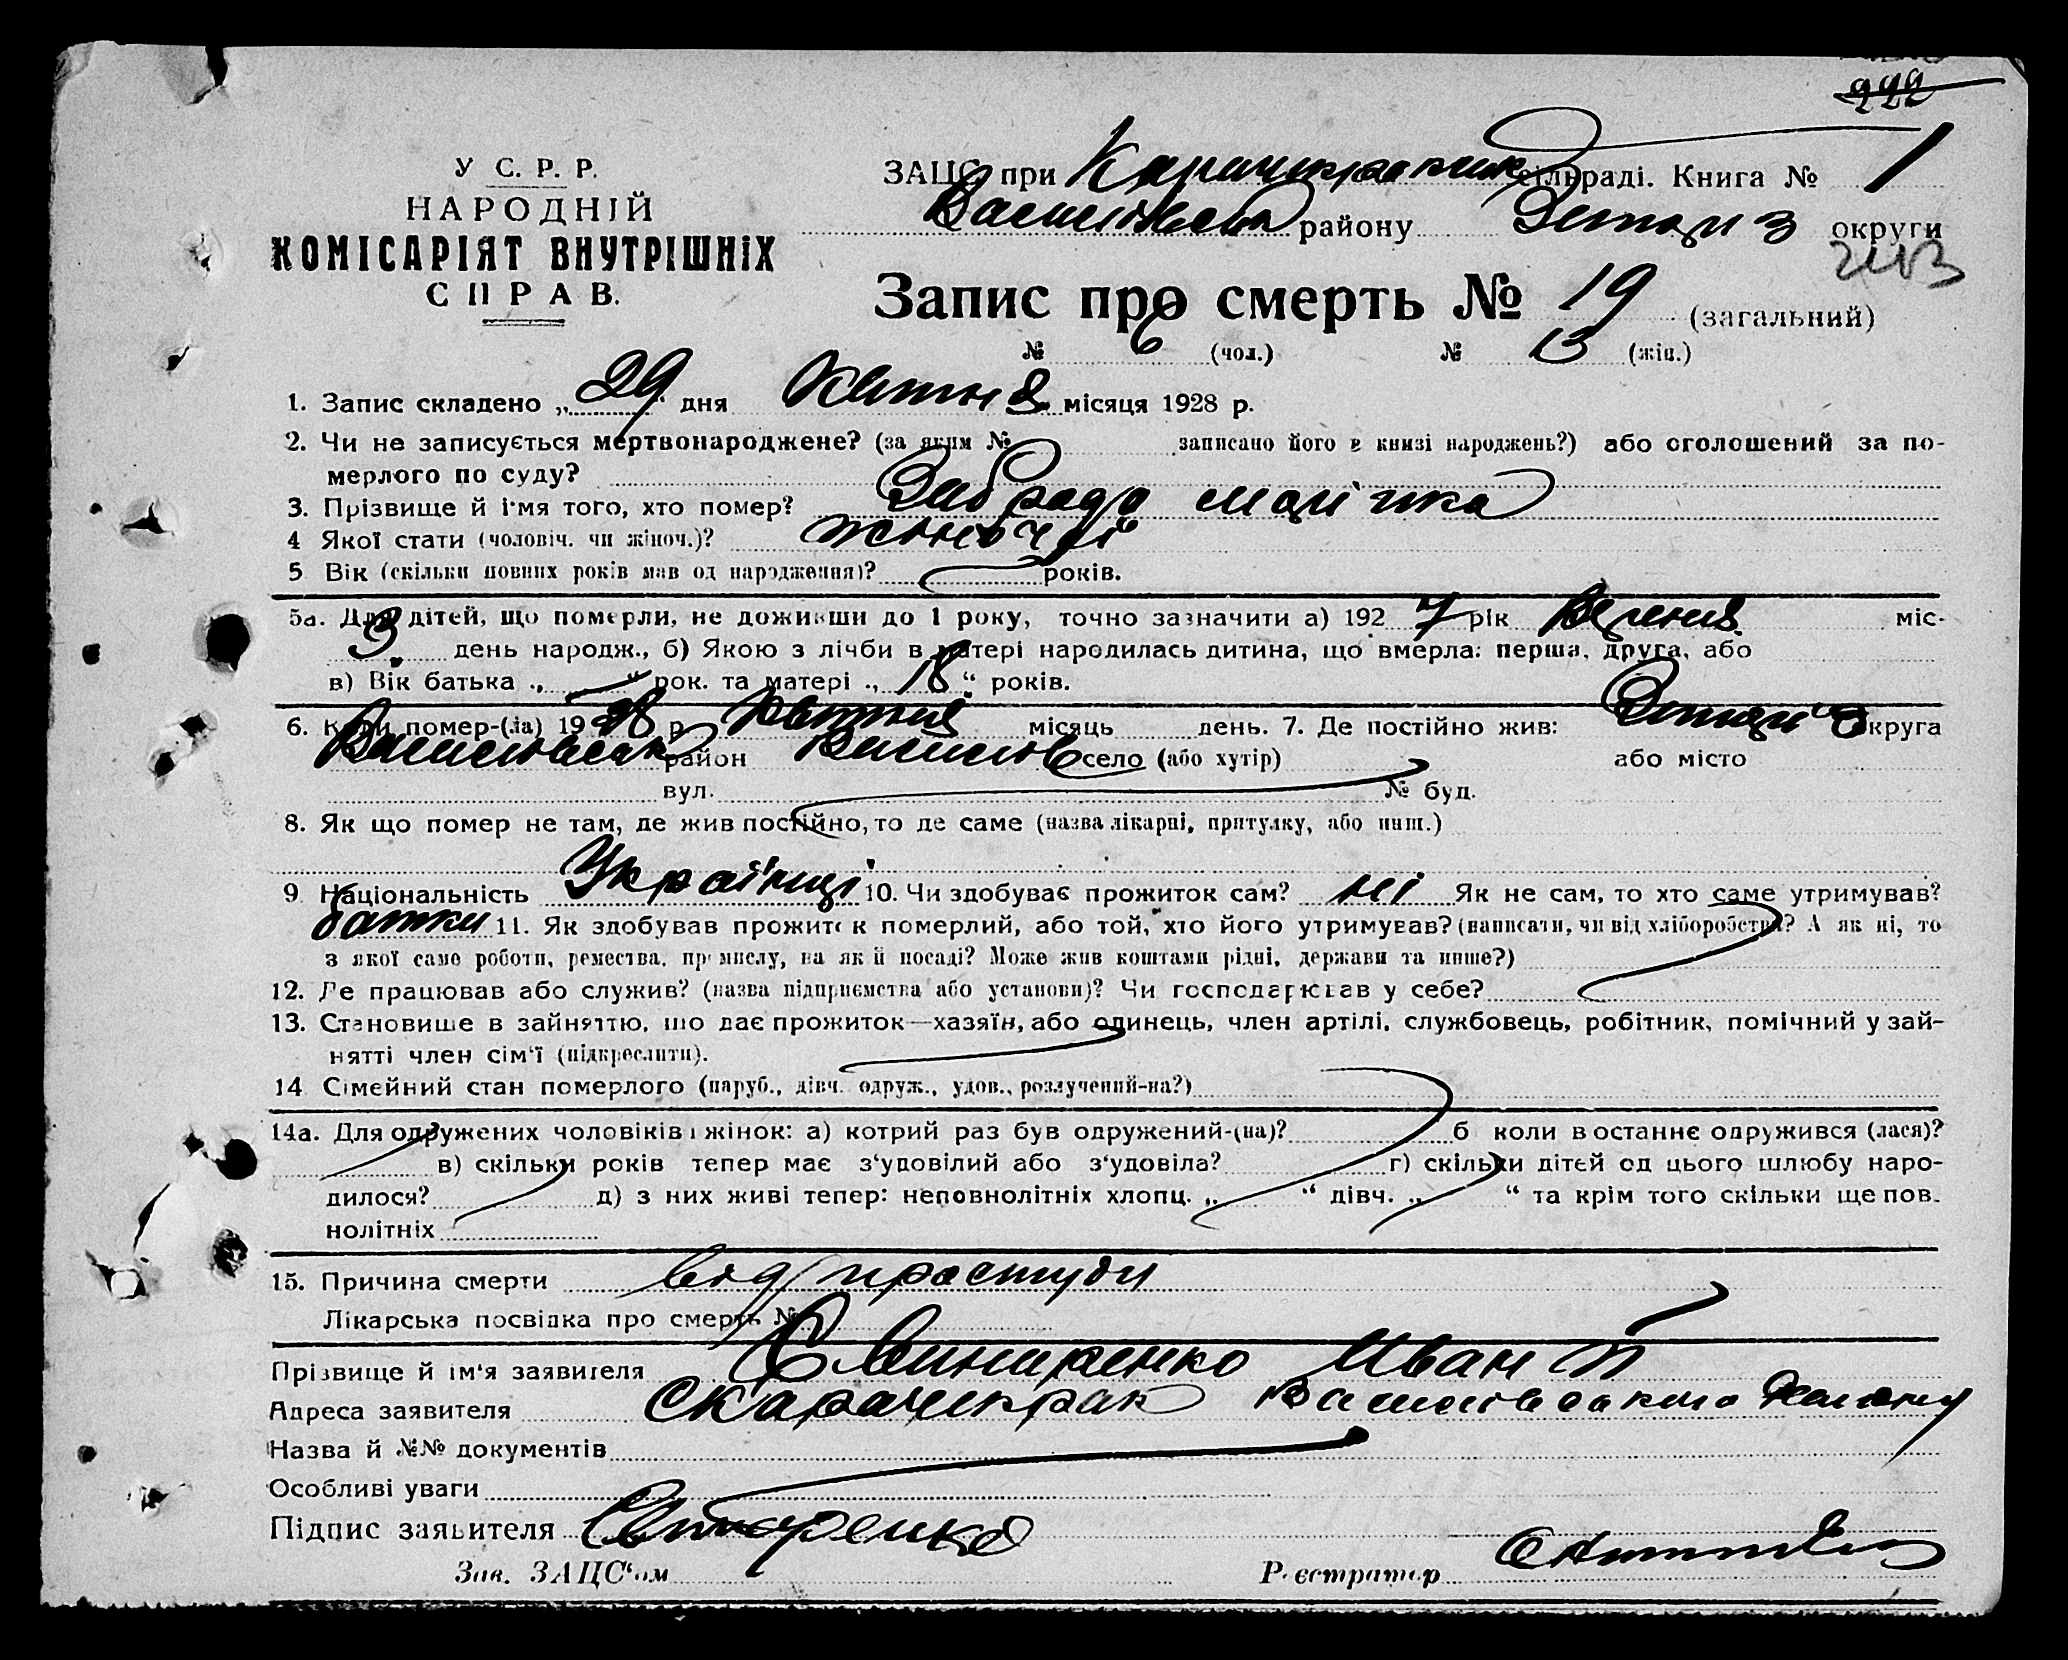 222
У С. Р. Р.
НАРОДНІЙ
КОМІСАРІЯТ ВНУТРІШНІХ
СПРАВ.
ЗАЦС при сільраді. Книга № 1
району округи
Запис про смерть № 19 (загальний)
№ 6 (чол.) № 13 (жін.)
1. Запис складено „ 29 “ дня Квітня місяця 1928 р.
2. Чи не записується мертвонароджене? (за яким № записано його в книзі народжень?) або оголошений за по-
мерлого по суду?
3. Прізвище й ім'я того, хто помер?
4 Якої стати (чоловіч. чи жіноч.)? жіночої
5 Вік (скільки повних років мав од народження)? років.
5а. Для дітей, що померли, не доживши до 1 року, точно зазначити а) 192 7 рік міс.
3 день народж., б) Якою з лічби в матері народилась дитина, що вмерла: перша, друга, або
в) Вік батька „ “ рок. та матері „ 18 “ років.
6. Коли помер-(ла) 19 28 р. Квітня місяць день. 7. Де постійно жив: округа
район село (або хутір) або місто
вул. № буд.
8. Як що помер не там, де жив постійно, то де саме (назва лікарні, притулку, або инш.)
9 Національність Українці 10. Чи здобував прожиток сам? ні Як не сам, то хто саме утримував?
батки 11. Як здобував прожиток померлий, або той, хто його утримував? (написати, чи від хліборобства? А як ні, то
з якої саме роботи, ремества, промислу, на як й посаді? Може жив коштами рідні, держави та инше?)
12. Де працював або служив? (назва підприємства або установи)? Чи господарював у себе?
13. Становише в зайняттю, що дає прожиток—хазяїн, або одинець, член артілі, службовець, робітник, помічний у зай-
нятті член сім'ї (підкреслити).
14 Сімейний стан померлого (паруб., дівч. одруж., удов., розлучений-на?)
14а. Для одружених чоловіків і жінок: а) котрий раз був одружений-(на)? б коли востаннє одружився (лася)?
в) скільки років тепер має з'удовілий або з'удовіла? г) скільки дітей од цього шлюбу наро-
дилося? д) з них живі тепер: неповнолітніх хлопц. „ “ дівч. „ “ та крім того скільки ще пов.
нолітніх
15. Причина смерти від простуди
Лікарська посвідка про смерть №
Прізвище й ім'я заявителя Іван П
Адреса заявителя с Карачекрак Василівського Району
Назва й №№ документів
Особливі уваги
Підпис заявителя
Зав. ЗАЦС'ом Реєстратор